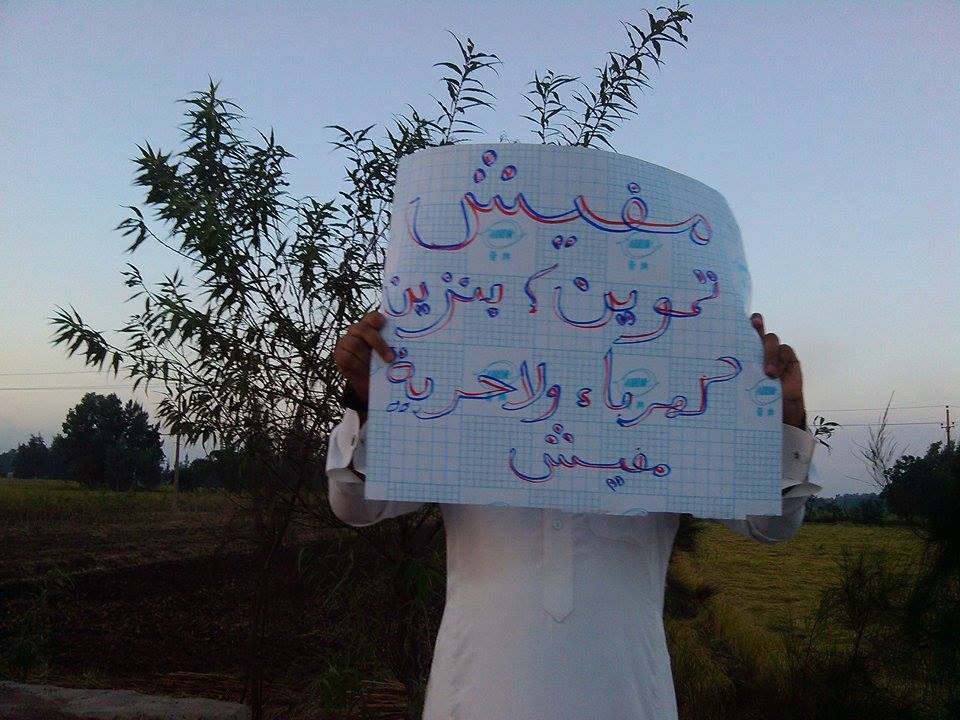 مفيش
تموين ؟ بنزين
كهرباء ولا حرية
مفيش